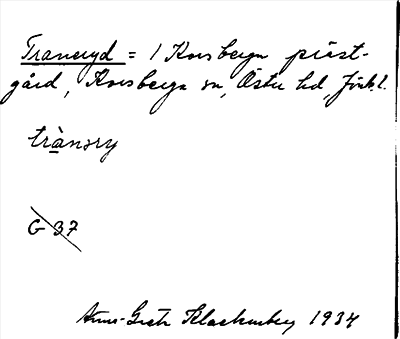 Traneryd = 1 Korsberga präst-
gård, Korsberga sn, Östra hd, Jönk.l.
trànəry
G 37
Ann-Greth Klackenberg 1934